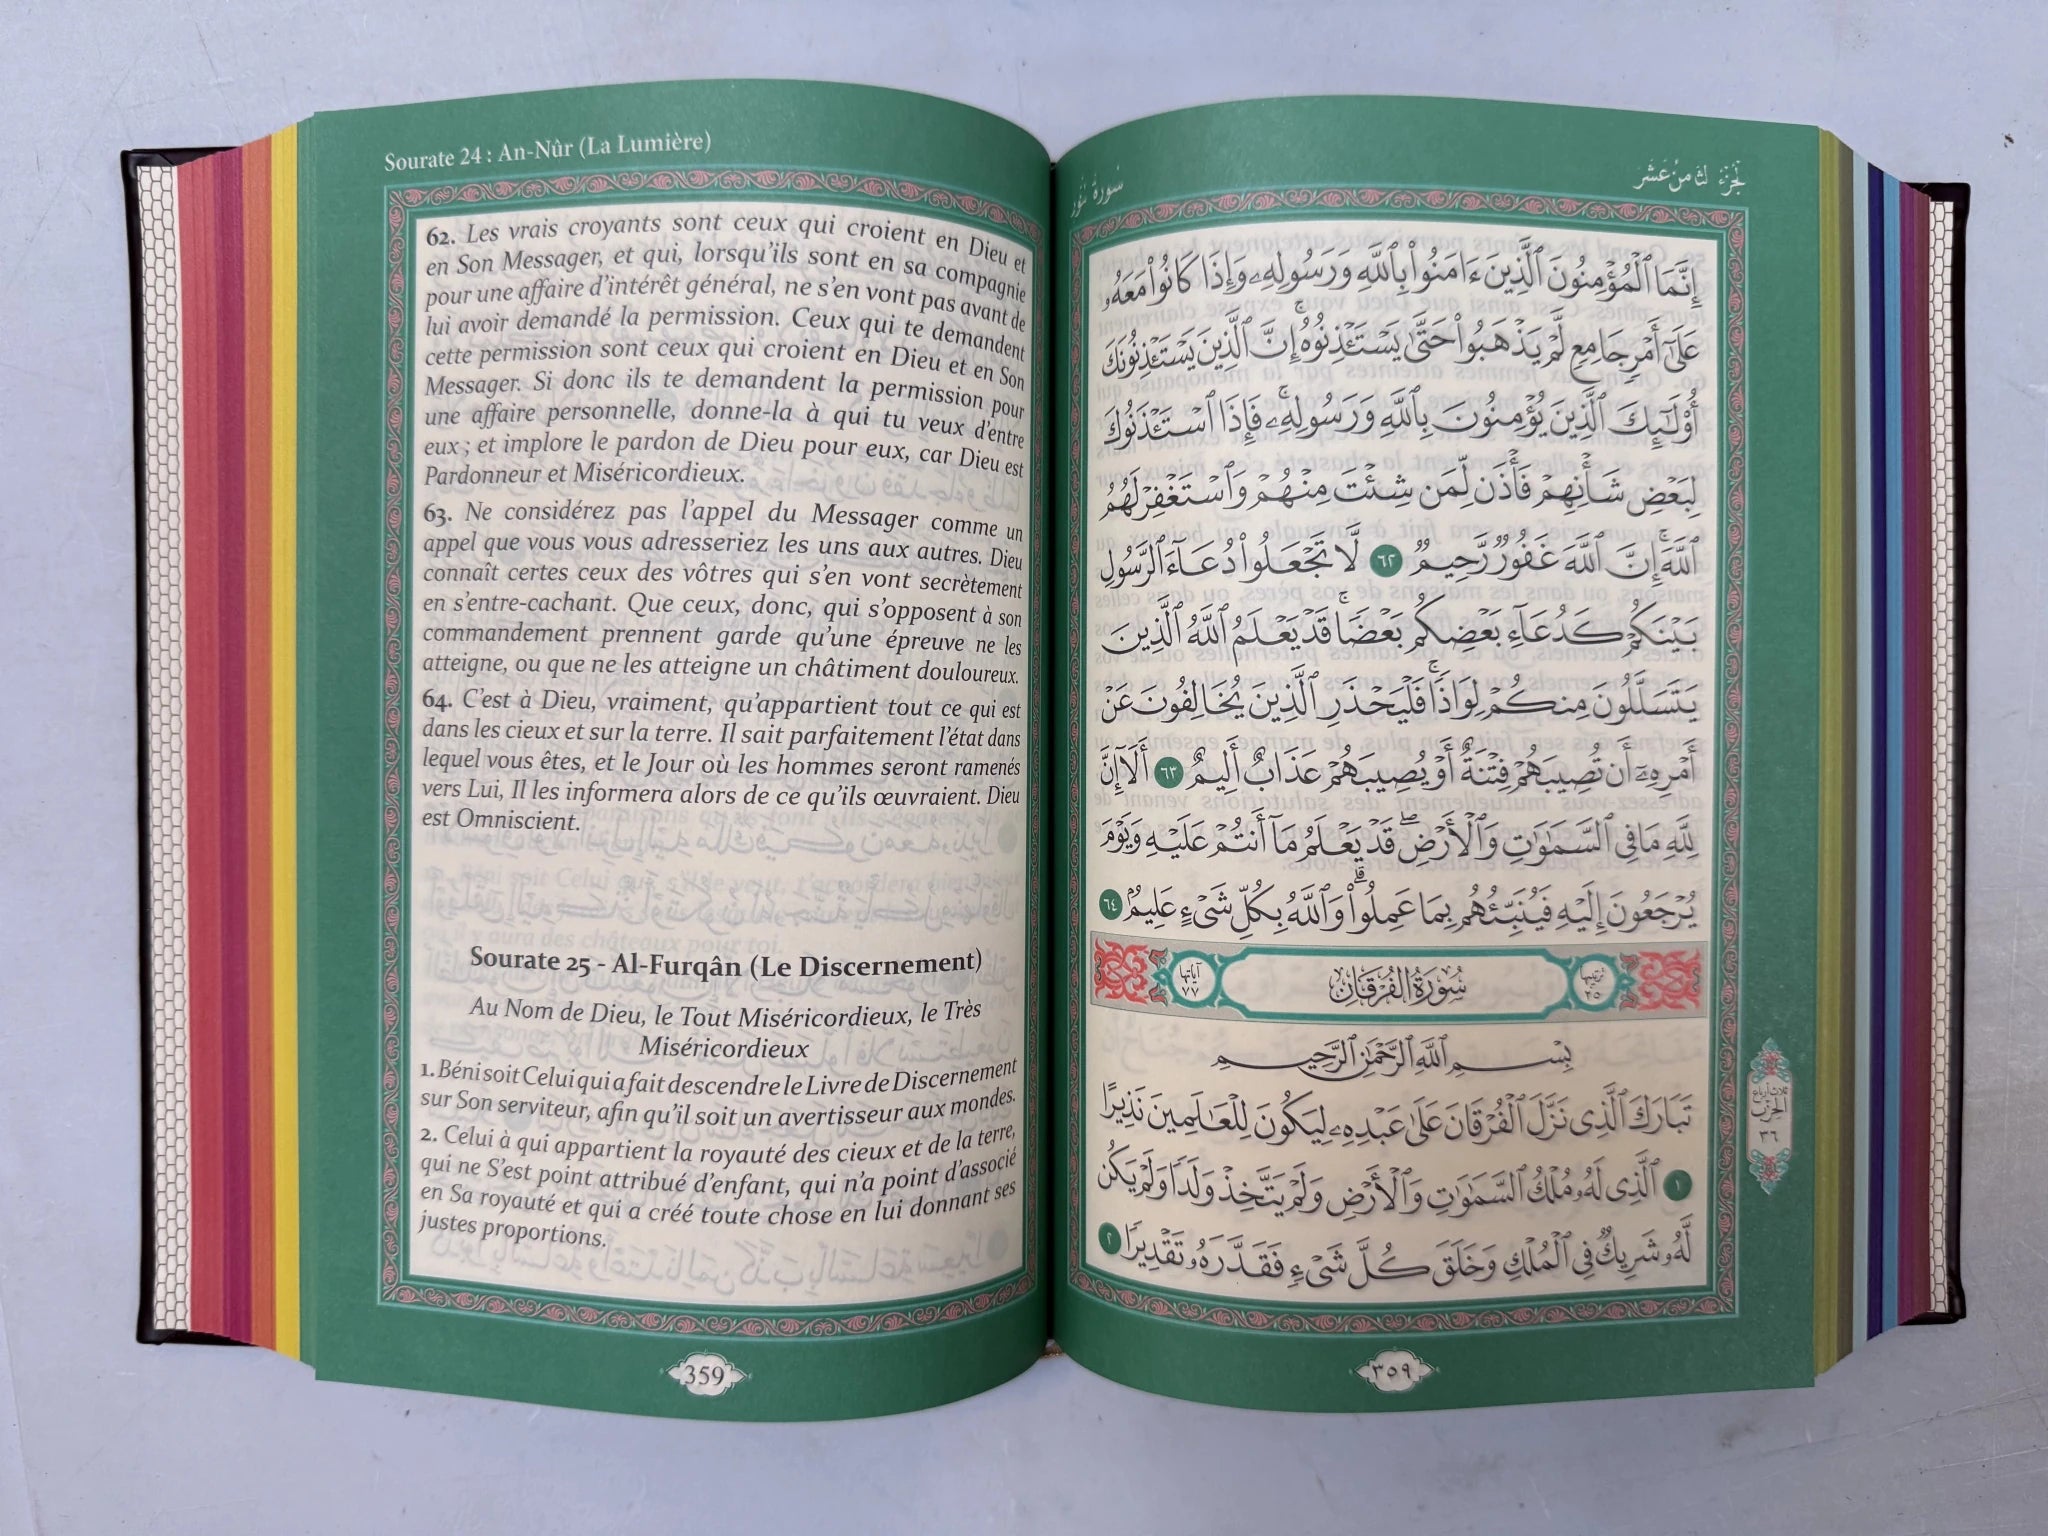 Sourate 24 : An-Nûr (La Lumière)
62. Les vrais croyants sont ceux qui croient en Dieu et
en Son Messager, et qui, lorsqu'ils sont en sa compagnie
pour une affaire d'intérêt général, ne s'en vont pas avant de
lui avoir demandé la permission. Ceux qui te demandent
cette permission sont ceux qui croient en Dieu et en Son
Messager. Si donc ils te demandent la permission pour
une affaire personnelle, donne-la à qui tu veux d'entre
eux ; et implore le pardon de Dieu pour eux, car Dieu est
Pardonneur et Miséricordieux.
63. Ne considérez pas l'appel du Messager comme un
appel que vous vous adresseriez les uns aux autres. Dieu
connaît certes ceux des vôtres qui s'en vont secrètement
en s'entre-cachant. Que ceux, donc, qui s'opposent à son
commandement prennent garde qu'une épreuve ne les
atteigne, ou que ne les atteigne un châtiment douloureux.
64. C'est à Dieu, vraiment, qu'appartient tout ce qui est
dans les cieux et sur la terre. Il sait parfaitement l'état dans
lequel vous êtes, et le Jour où les hommes seront ramenés
vers Lui, Il les informera alors de ce qu'ils œuvraient. Dieu
est Omniscient.
Sourate 25 - Al-Furqân (Le Discernement)
Au Nom de Dieu, le Tout Miséricordieux, le Très
Miséricordieux
1. Béni soit Celui qui a fait descendre le Livre de Discernement
sur Son serviteur, afin qu'il soit un avertisseur aux mondes.
2. Celui à qui appartient la royauté des cieux et de la terre,
qui ne S'est point attribué d'enfant, qui n'a point d'associé
en Sa royauté et qui a créé toute chose en lui donnant ses
justes proportions.
359
سورة نور
لجزء لثامن عشر
إِنَّمَا ٱلْمُؤْمِنُونَ ٱلَّذِينَ ءَامَنُوا۟ بِٱللَّهِ وَرَسُولِهِۦ وَإِذَا كَانُوا۟ مَعَهُۥ
عَلَىٰٓ أَمْرٍ جَامِعٍ لَّمْ يَذْهَبُوا۟ حَتَّىٰ يَسْتَـْٔذِنُوهُ ۚ إِنَّ ٱلَّذِينَ يَسْتَـْٔذِنُونَكَ
أُو۟لَـٰٓئِكَ ٱلَّذِينَ يُؤْمِنُونَ بِٱللَّهِ وَرَسُولِهِۦ ۚ فَإِذَا ٱسْتَـْٔذَنُوكَ
لِبَعْضِ شَأْنِهِمْ فَأْذَن لِّمَن شِئْتَ مِنْهُمْ وَٱسْتَغْفِرْ لَهُمُ
ٱللَّهَ ۚ إِنَّ ٱللَّهَ غَفُورٌ رَّحِيمٌ ٦٢ لَّا تَجْعَلُوا۟ دُعَآءَ ٱلرَّسُولِ
بَيْنَكُمْ كَدُعَآءِ بَعْضِكُم بَعْضًا ۚ قَدْ يَعْلَمُ ٱللَّهُ ٱلَّذِينَ
يَتَسَلَّلُونَ مِنكُمْ لِوَاذًا ۚ فَلْيَحْذَرِ ٱلَّذِينَ يُخَالِفُونَ عَنْ
أَمْرِهِۦٓ أَن تُصِيبَهُمْ فِتْنَةٌ أَوْ يُصِيبَهُمْ عَذَابٌ أَلِيمٌ ٦٣ أَلَآ إِنَّ
لِلَّهِ مَا فِى ٱلسَّمَـٰوَٰتِ وَٱلْأَرْضِ ۖ قَدْ يَعْلَمُ مَآ أَنتُمْ عَلَيْهِ وَيَوْمَ
يُرْجَعُونَ إِلَيْهِ فَيُنَبِّئُهُم بِمَا عَمِلُوا۟ ۗ وَٱللَّهُ بِكُلِّ شَىْءٍ عَلِيمٌ ٦٤
ترتيبها ٢٥ سُورَةُ الفُرْقَانِ آياتها ٧٧
بِسْمِ ٱللَّهِ ٱلرَّحْمَـٰنِ ٱلرَّحِيمِ
تَبَارَكَ ٱلَّذِى نَزَّلَ ٱلْفُرْقَانَ عَلَىٰ عَبْدِهِۦ لِيَكُونَ لِلْعَـٰلَمِينَ نَذِيرًا
١ ٱلَّذِى لَهُۥ مُلْكُ ٱلسَّمَـٰوَٰتِ وَٱلْأَرْضِ وَلَمْ يَتَّخِذْ وَلَدًا وَلَمْ يَكُن
لَّهُۥ شَرِيكٌ فِى ٱلْمُلْكِ وَخَلَقَ كُلَّ شَىْءٍ فَقَدَّرَهُۥ تَقْدِيرًا ٢
ثلاثة أرباع
الحزب
٣٦
٣٥٩